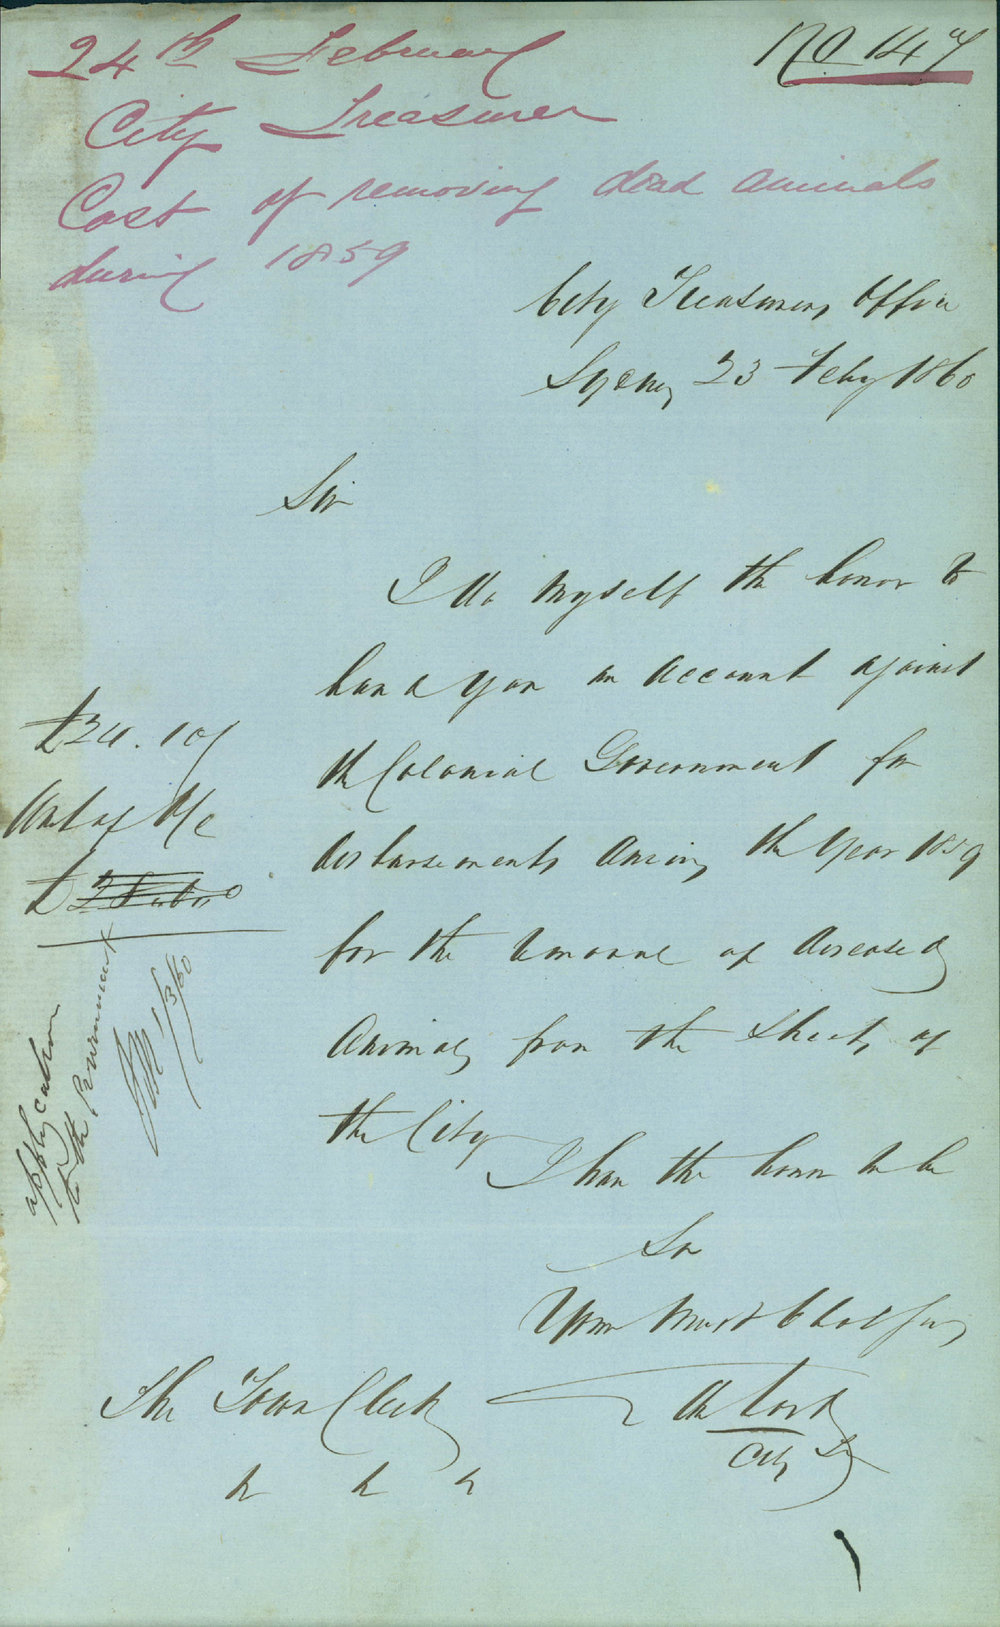 24th February
No 147
City Treasurer
Cost of removing dead animals
during 1859
City Treasurers Office
Sydney 23 Feby 1860
Sir
I do myself the honor to
hand you an Account against
the Colonial Government for
disbursements during the Year 1859
for the removal of diseased
Animals from the Streets of
the City
I have the honor to be
Sir
Your Most Obdt Servt
City Tr
The Town Clerk
Amt of A/c
£
application
to the Government
1/3/60